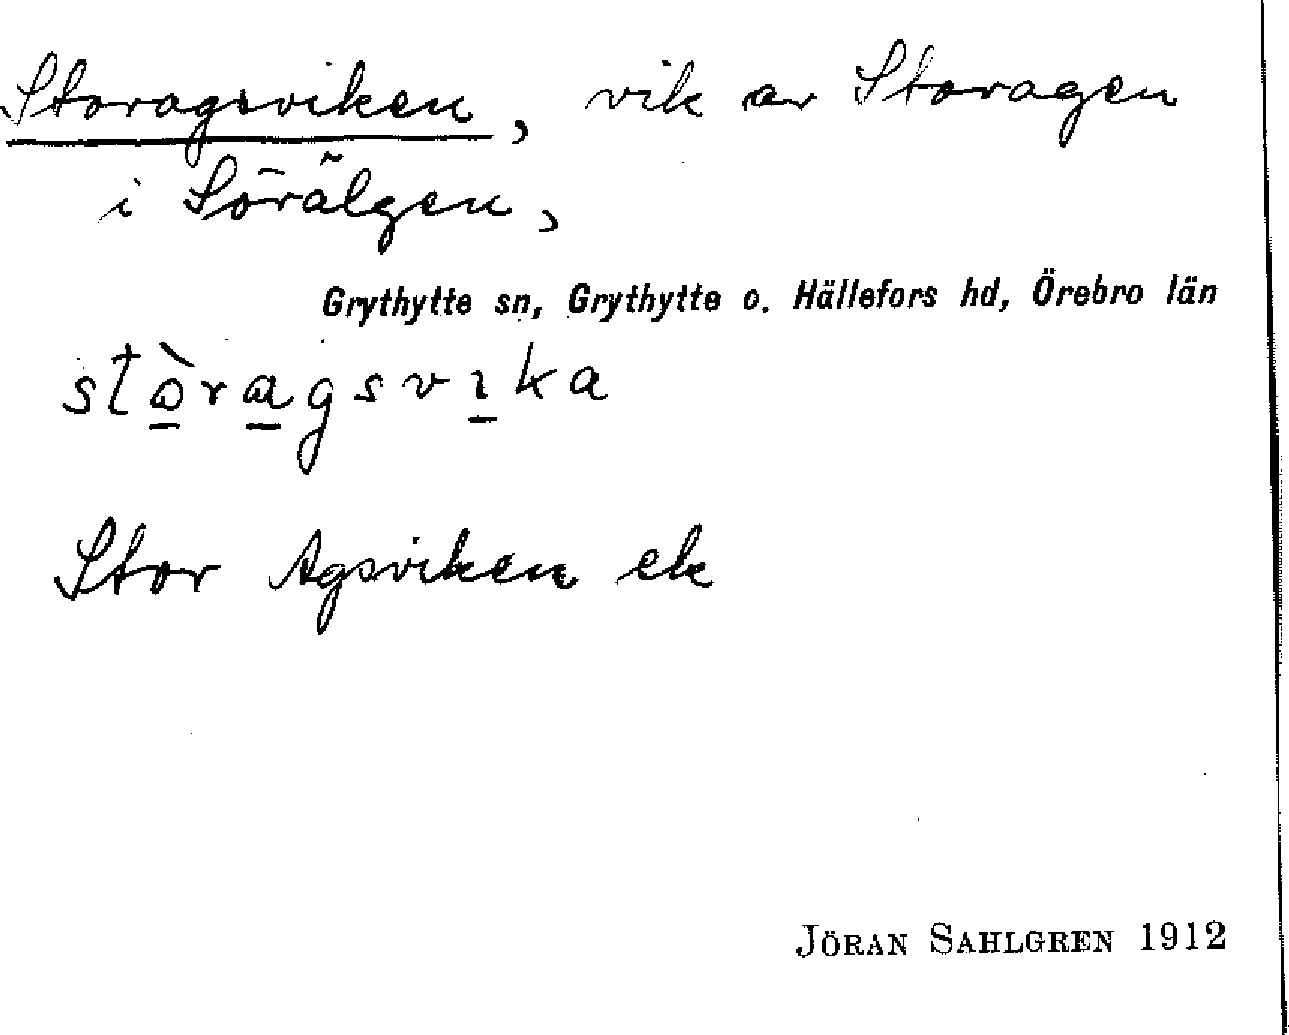 Storagsviken, vik av Storagen
i Sörälgen,
Grythytte sn, Grythytte o. Hällefors hd, Örebro län
stò̱ra̱gsvı̱ka
Stor Agsviken ek
JÖRAN SAHLGREN 1912